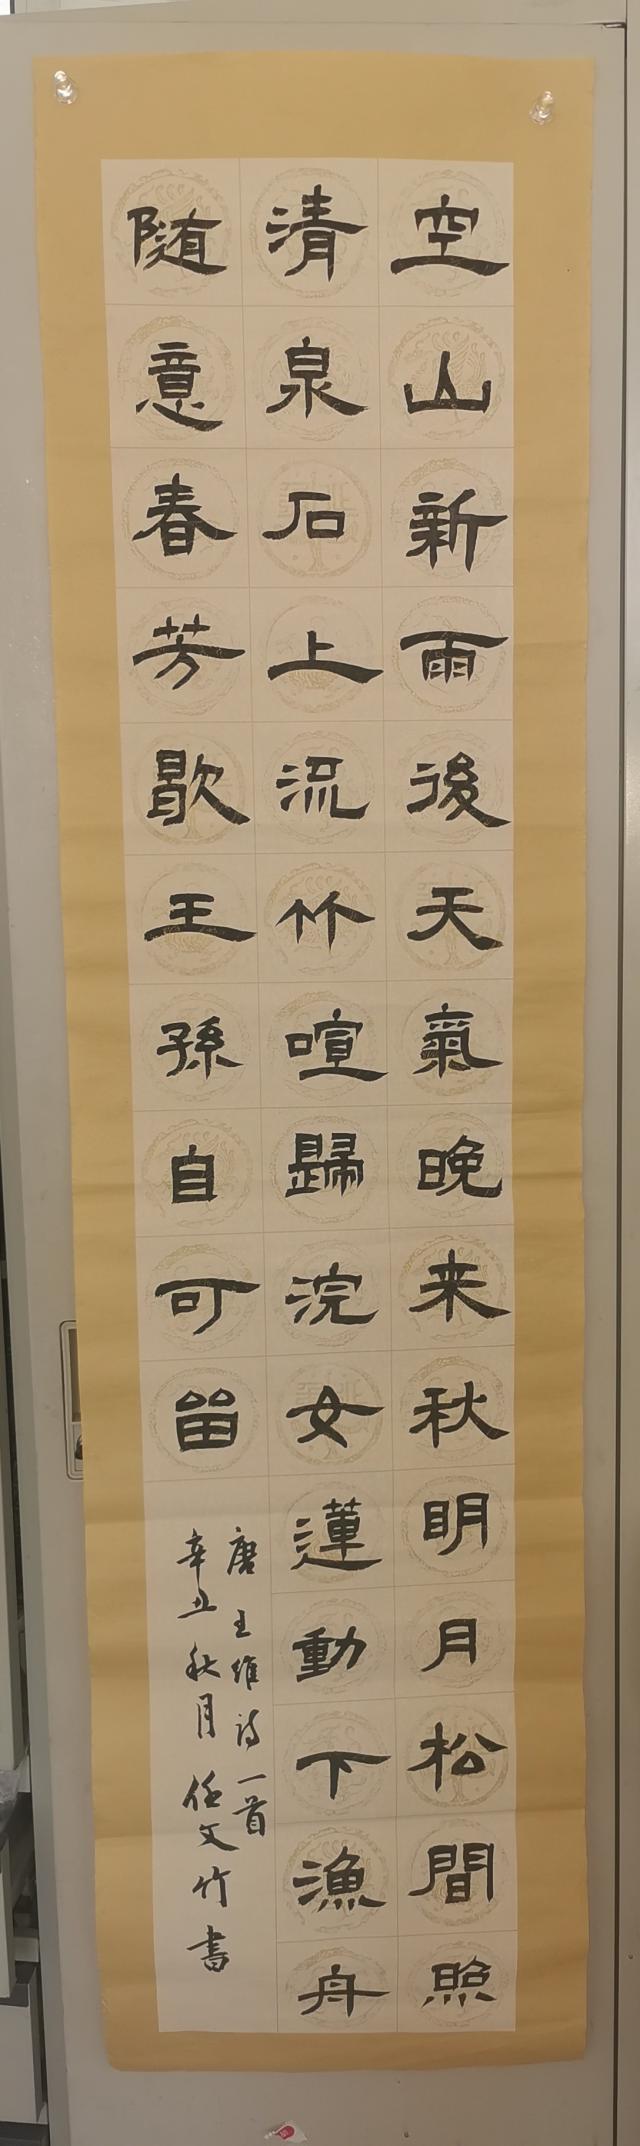 空山新雨後天氣晚来秋明月松間照
清泉石上流竹喧歸浣女蓮動下漁舟
随意春芳歇王孫自可留
唐王维诗一首
辛丑秋月任文竹書